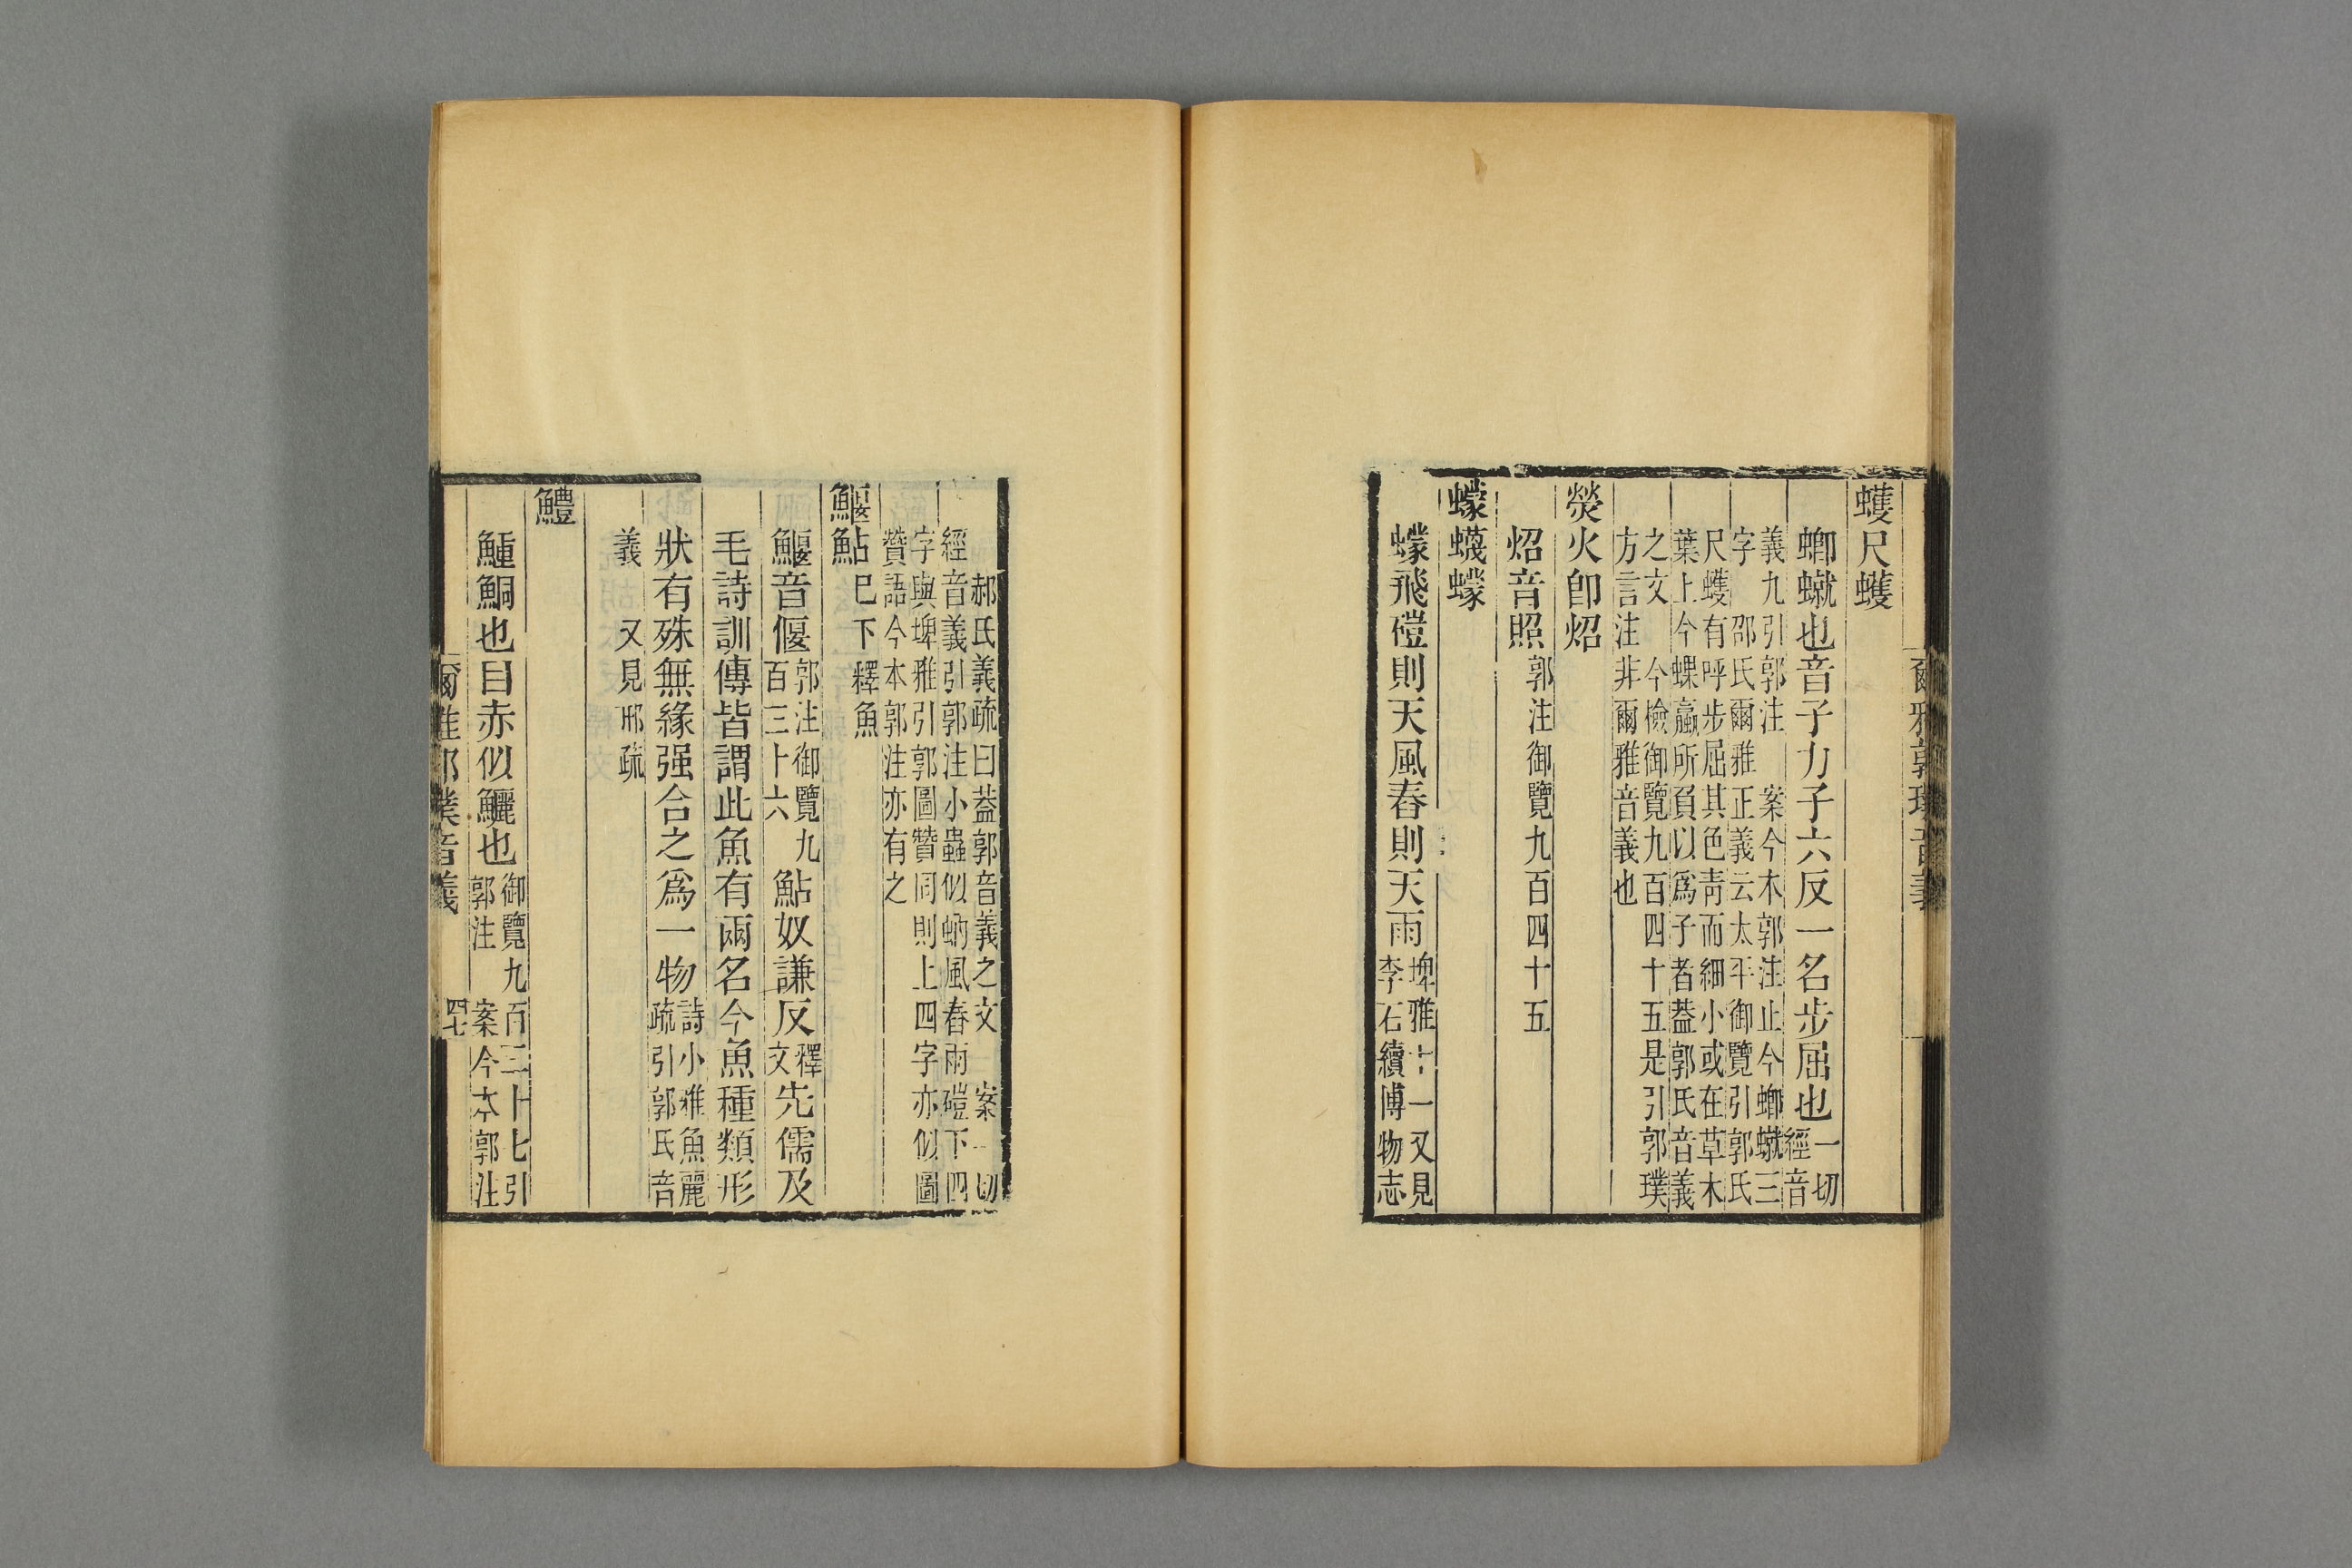 爾雅郭璞音義
蠖尺蠖
蝍䗥也音子力子六反一名步屈也一切
經音
義九引郭注　案今木郭注止今蝍䗥三
字　邵氏爾雅正義云太平御覽引郭氏
尺蠖有呼步屈其色靑而細小或在草木
葉上今蜾蠃所負以爲子者葢郭氏音義
之文　今檢御覽九百四十五是引郭璞
方言注非爾雅音義也
熒火卽炤
炤音照郭注御覽九百四十五
蠓蠛蠓
蠓飛磑則天風舂則天雨埤雅十一又見
李石續博物志
郝氏義疏曰葢郭音義之文　案一切
經音義引郭注小蟲似蚋風舂雨磑下四
字與埤雅引郭圖贊同則上四字亦似圖
贊語今本郭注亦有之
鰋鮎巳下釋魚
鰋音偃郭注御覽九
百三十六鮎奴謙反釋
文先儒及
毛詩訓傳皆謂此魚有兩名今魚種類形
狀有殊無緣强合之爲一物詩小雅魚麗
疏引郭氏音
義　又見邢疏
鱧
鱧鮦也目赤似鱺也御覽九百三十七引
郭注　案今本郭注
爾雅郭璞音義
四七